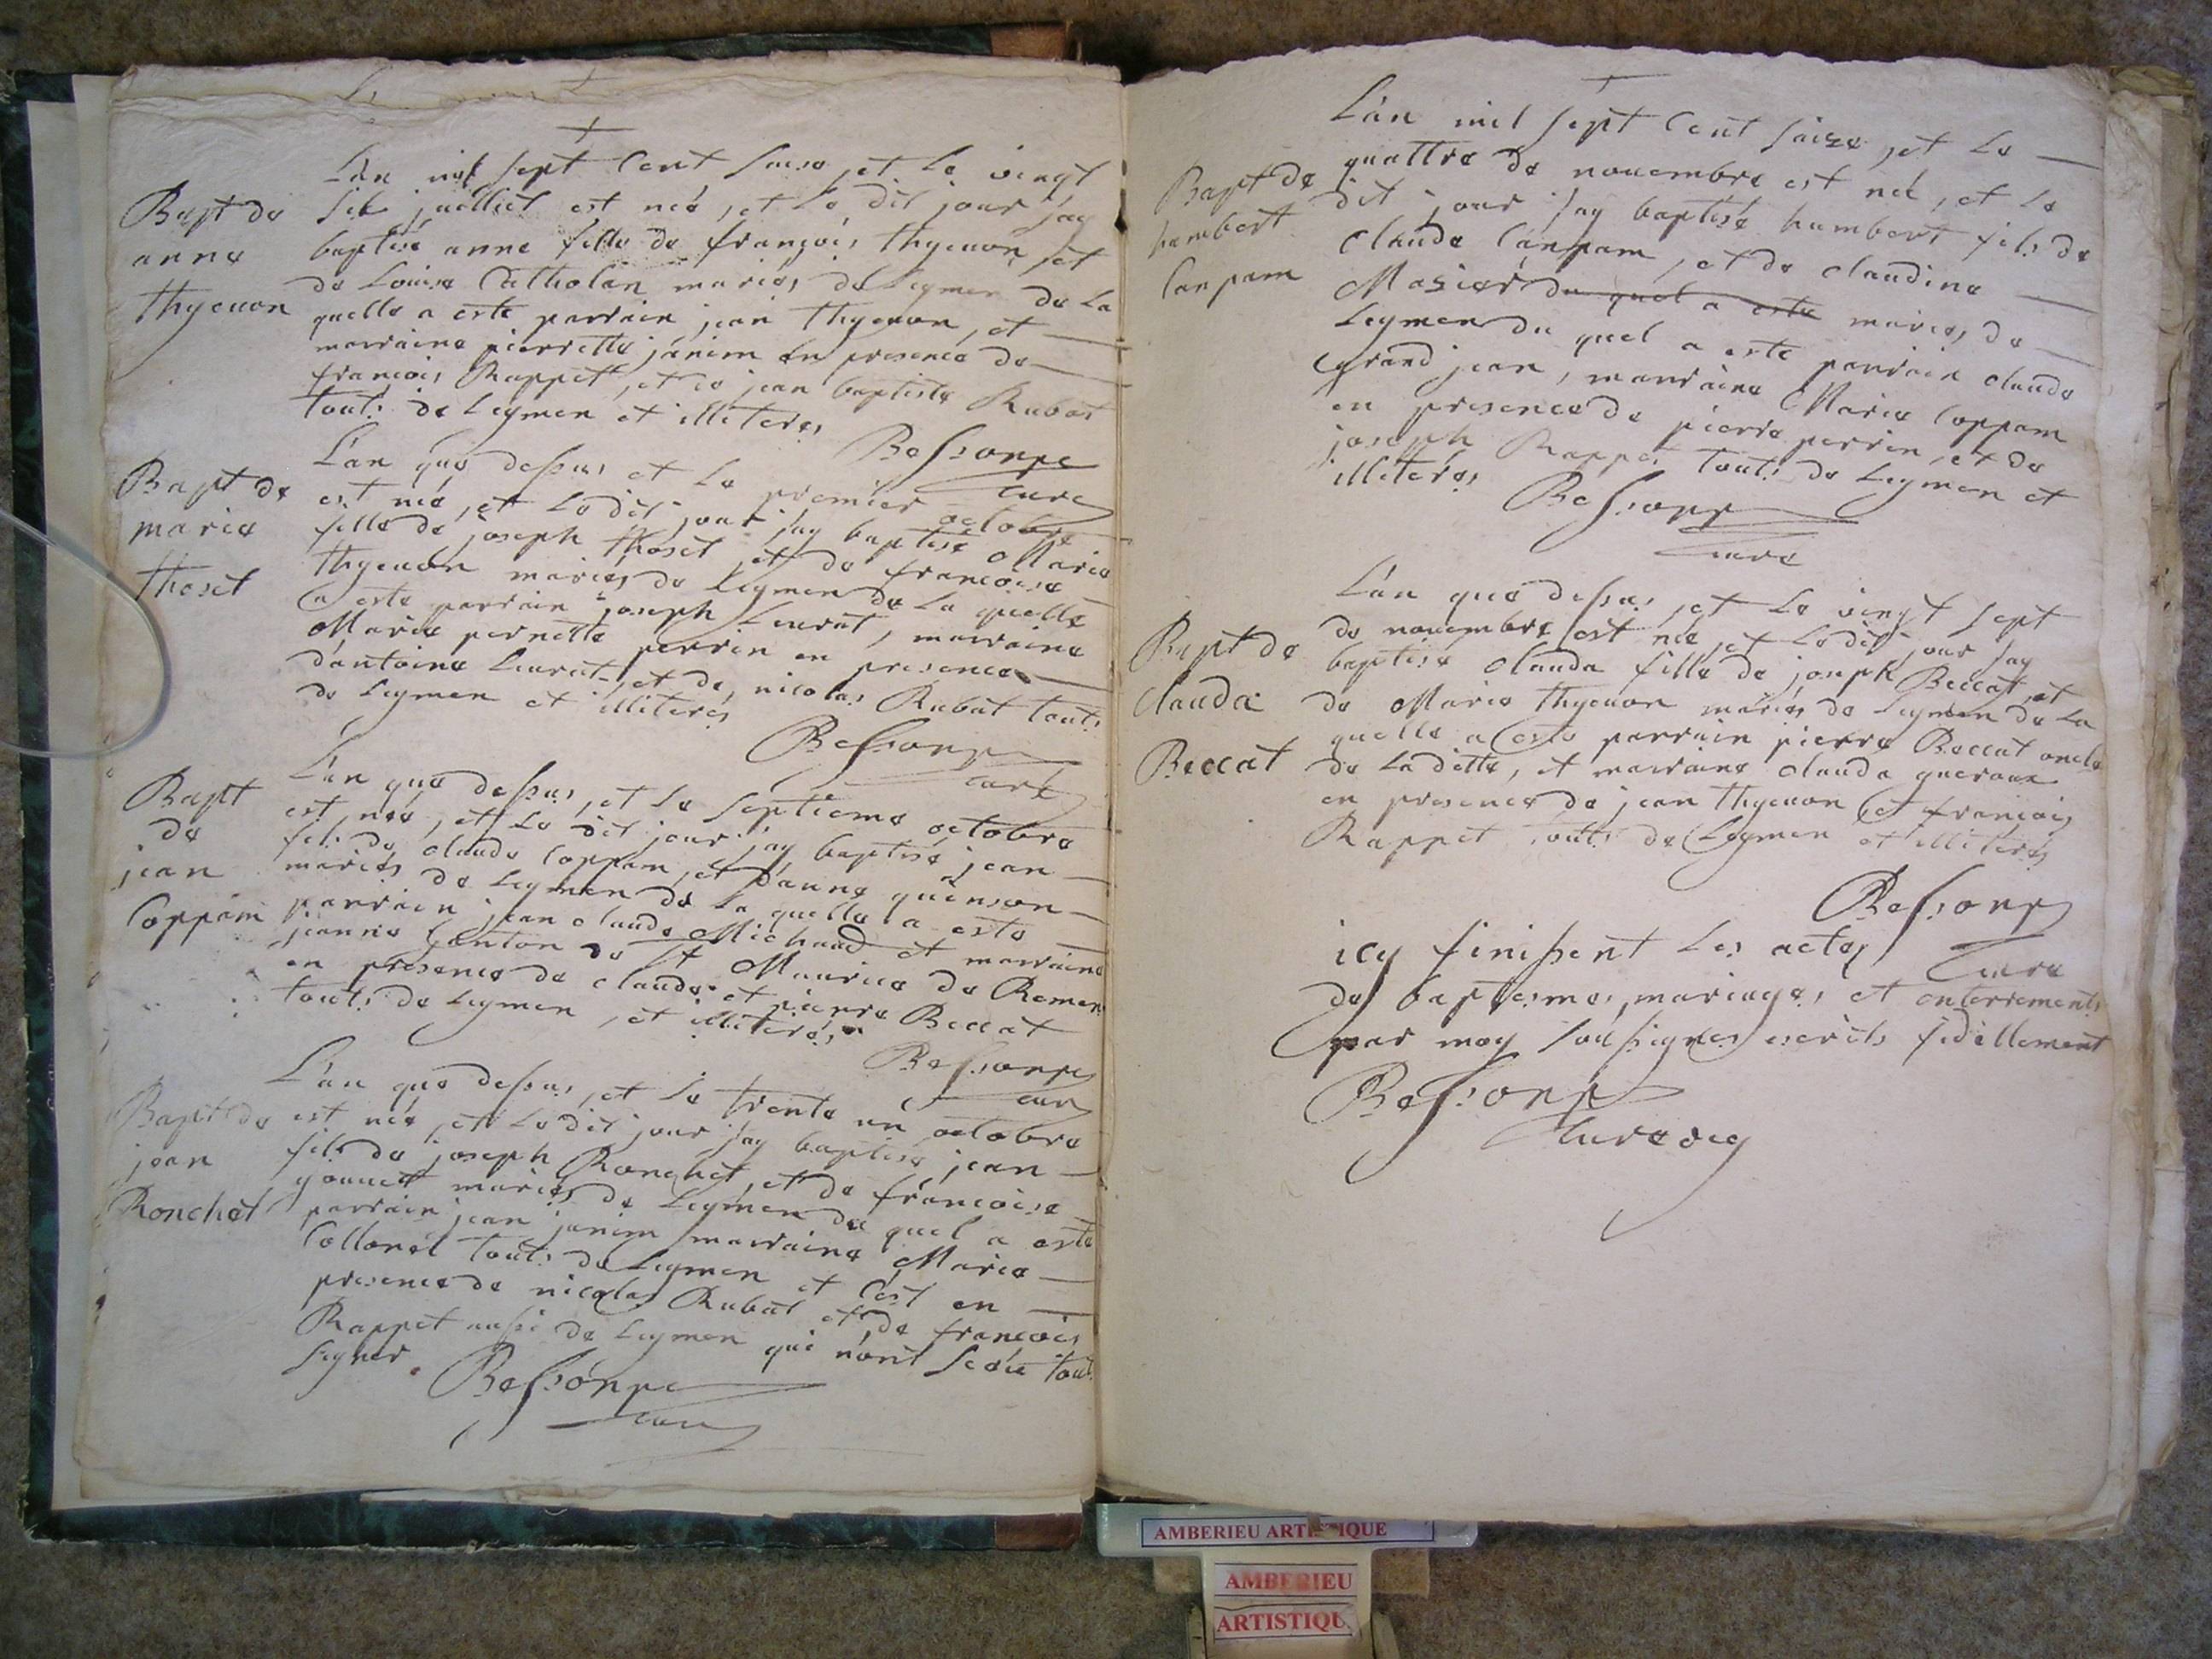 L'an mil sept cent saise, et le vingt
Bapt de
anne
thyeuon
sis juilliet est née, et le dit jour j'ay
baptisé anne fille de françois thyeuon, et
de Louise Catholan mariés de Leymen de la
quelle a esté parrain jean thyeuon, et
marraine pierrette janim en presence de
françois Rappet, et de jean baptiste Rubat
touts de Leymen et illiteres
Bessonpe
curé
Bapt de
marie
thoset
L'an que dessus et le premier octobre
est née, et le dit jour j'ay baptisé Marie
fille de joseph thoset, et de françoise
thyeuon mariés de Leymen de la quelle
a esté parrain joseph Leurat, marraine
Marie pernette perrin en presence
d'antoine Leurat, et de nicolas Rubat touts
de Leymen et illiterés
Bessonpe
curé
Bapt
de
jean
Coppam
L'an que dessus, et le septieme octobre
est née, et le dit jour j'ay baptisé jean
fils de claude Coppam, et d'anne quinson
mariés de Leymen de la quelle a esté
parrain jean claude Michaud et marraine
jeanne Ganton de St Maurice de Remen
en presence de claude et pierre Beccat
touts de Leymen, et illiterés
Bessonpe
curé
Bapt de
jean
Ronchet
L'an que dessus, et le trente un octobre
est née, et le dit jour j'ay baptisé jean
fils de joseph Ronchet, et de françoise
youuet mariés de Leymen du quel a esté
parrain jean janim marraine Marie
Collonel touts de Leymen et c'est en
presence de nicolas Rubat et de françois
Rappet aussi de Leymen qui n'ont sceu touts
signer
Bessonpe
curé
L'an mil sept cent saize, et le
Bapt de
humbert
Canpam
quattre de nouembre est né, et le
dit jour j'ay baptisé humbert fils de
claude Canpam, et de claudine
Masier du quel a esté mariés de
Leymen du quel a esté parrain claude
grand jean, marraine Marie Coppam
en presence de pierre perrin, et de
joseph Rappet touts de Leymen et
illiterés
Bessonpe
curé
L'an que dessus, et le vingt sept
Bapt de
clauda
Beccat
de nouembre est née, et le dit jour j'ay
baptisé clauda fille de joseph Beccat, et
de Marie thyeuon mariés de Leymen de la
quelle a esté parrain pierre Beccat oncle
de la ditte, et marraine clauda
en presence de jean thyeuon et françois
Rappet touts de Leymen et illiterés
Bessonpe
curé
icy finissent les actes
de baptesmes, mariages, et enterrements
par moy soussignes escrits fidellement
Bessonpe
curé
AMBERIEU ARTISTIQUE
AMBERIEU
ARTISTIQUE